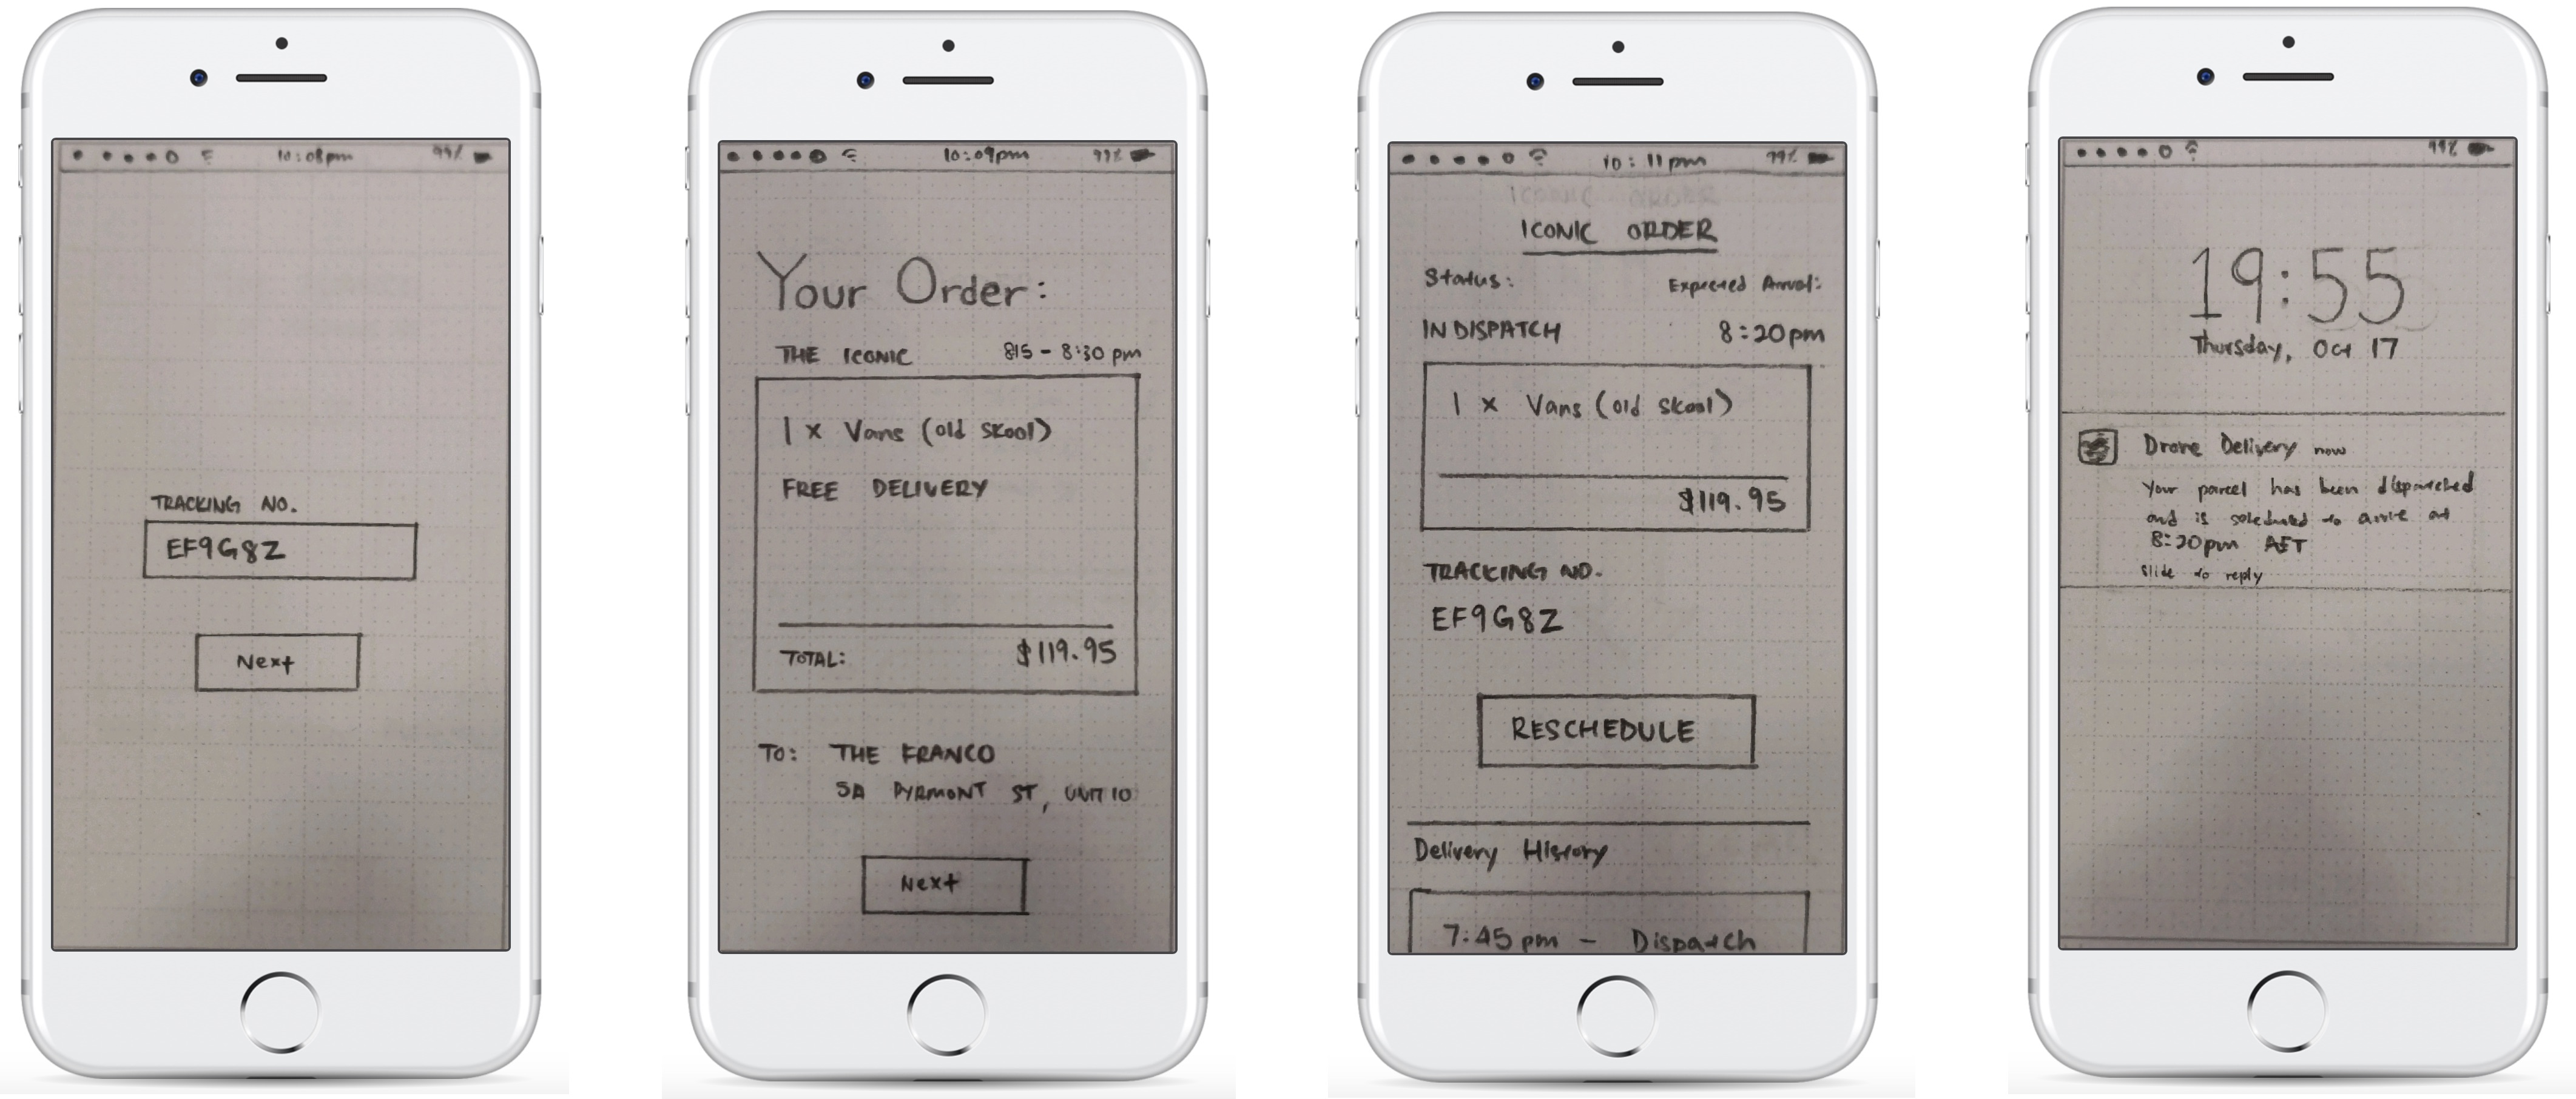 10:08pm 99%
TRACKING NO.
EF9G8Z
Next
10:09pm 99%
Your Order:
THE ICONIC 8:15 - 8:30 pm
1 x Vans (old skool)
FREE DELIVERY
TOTAL: $119.95
TO: THE FRANCO
5A PYRMONT ST, UNIT 10
Next
10:11pm 99%
ICONIC ORDER
ICONIC ORDER
Status: Expected Arrival:
IN DISPATCH 8:20pm
1 x Vans (old skool)
$119.95
TRACKING NO.
EF9G8Z
RESCHEDULE
Delivery History
7:45pm - Dispatch
99%
19:55
Thursday, Oct 17
Drone Delivery now
Your parcel has been dispatched
and is scheduled to arrive at
8:20pm AET
slide to reply